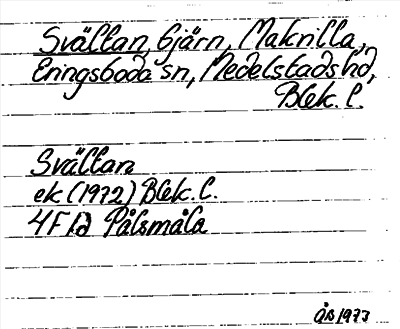 Svältan, tjärn, Makrilla,
Eringsboda sn, Medelstads hd,
Blek. l.
Svältan
ek (1972) Blek. l.
4F 1d Pålsmåla
ÅB 1973